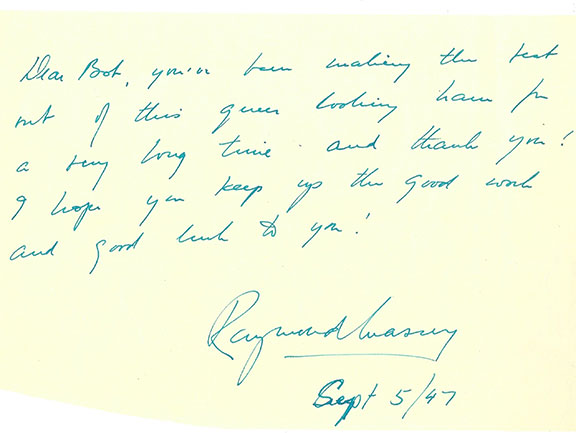 Dear Bob, you've been making the best
out of this queer looking ham for
a very long time - and thank you!
I hope you keep up the good work
and good luck to you!
Raymond Massey
Sept 5/47